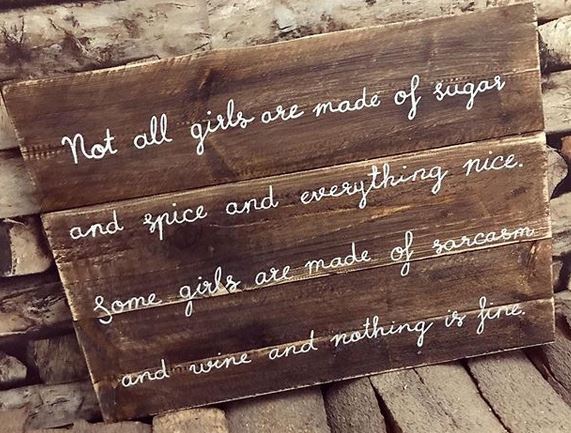 Not all girls are made of sugar
and spice and everything nice.
Some girls are made of sarcasm
and wine and nothing is fine.